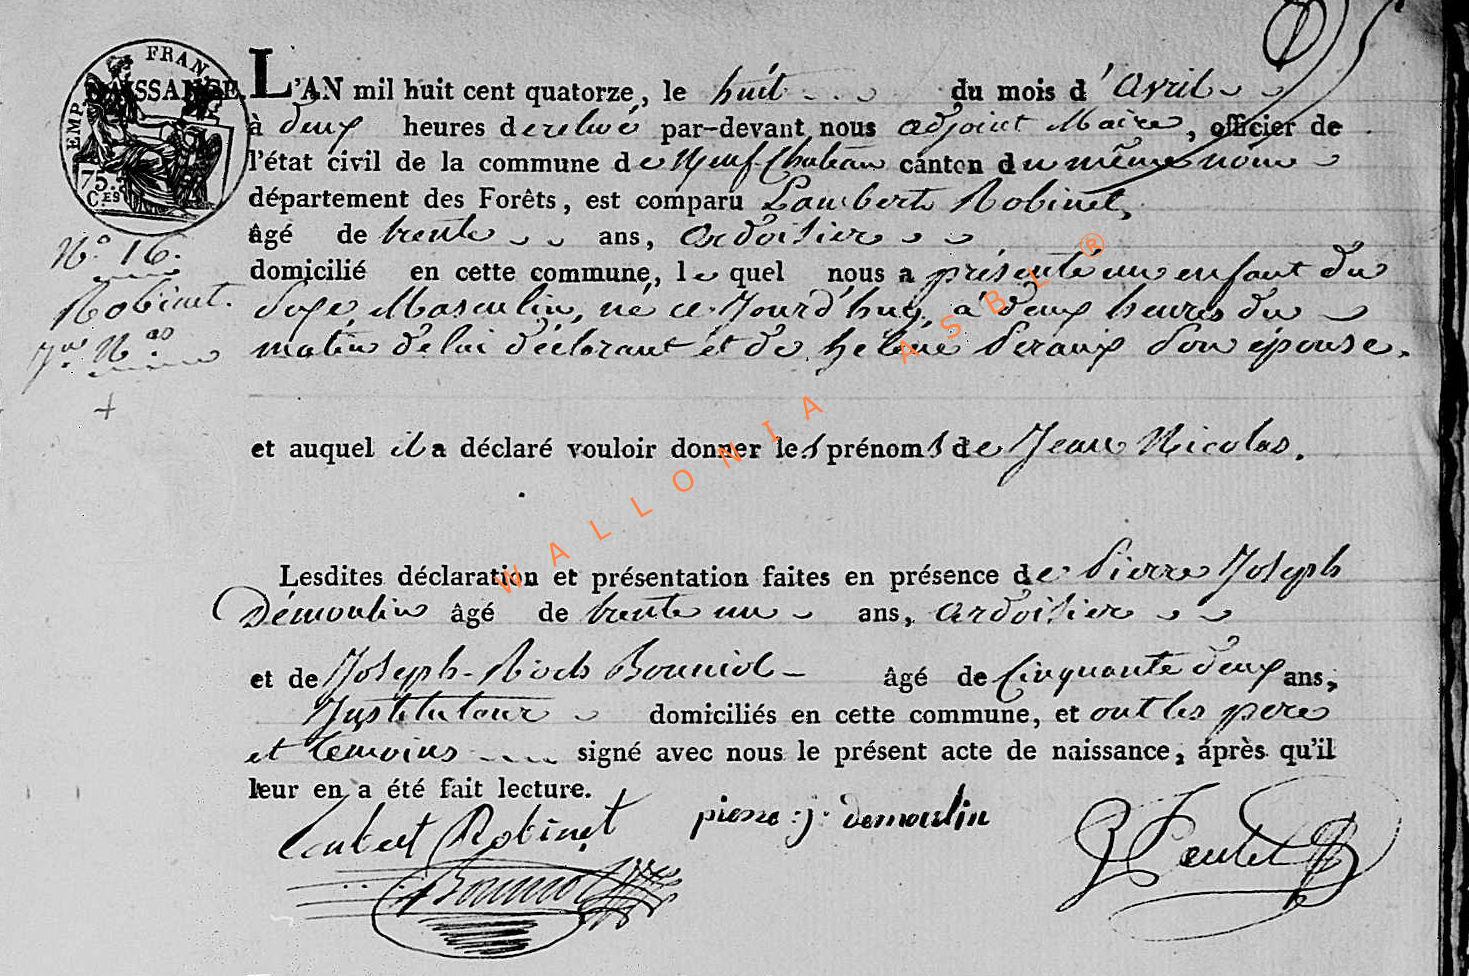 EMP FRAN
75.
C.ES
NAISSANCE.
N.° 16.
Robinet.
Jean N.as
+
L'AN mil huit cent quatorze, le huit du mois d'avril
à deux heures de relevé par-devant nous adjoint Maire, officier de
l'état civil de la commune de Neufchateau canton du même nom
département des Forêts, est comparu Lambert Robinet,
âgé de trente ans, ardoisier
domicilié en cette commune, lequel nous a présenté un enfant du
Sexe Masculin, né ce Jourd'huy, à deux heures du
matin de lui déclarant et de héléne Peraux Son épouse.
et auquel il a déclaré vouloir donner les prénoms de Jean Nicolas.
Lesdites déclaration et présentation faites en présence de Pierre Joseph
Démoulin âgé de trente un ans, ardoisier
et de Joseph-Roch Bouniol âgé de Cinquante deux ans,
Justituteur domiciliés en cette commune, et ont les pere
et temoins signé avec nous le présent acte de naissance, après qu'il
leur en a été fait lecture.
Lambert Robinet pierre : j : demoulin
Bouniol
WALLONIA ASBL ®